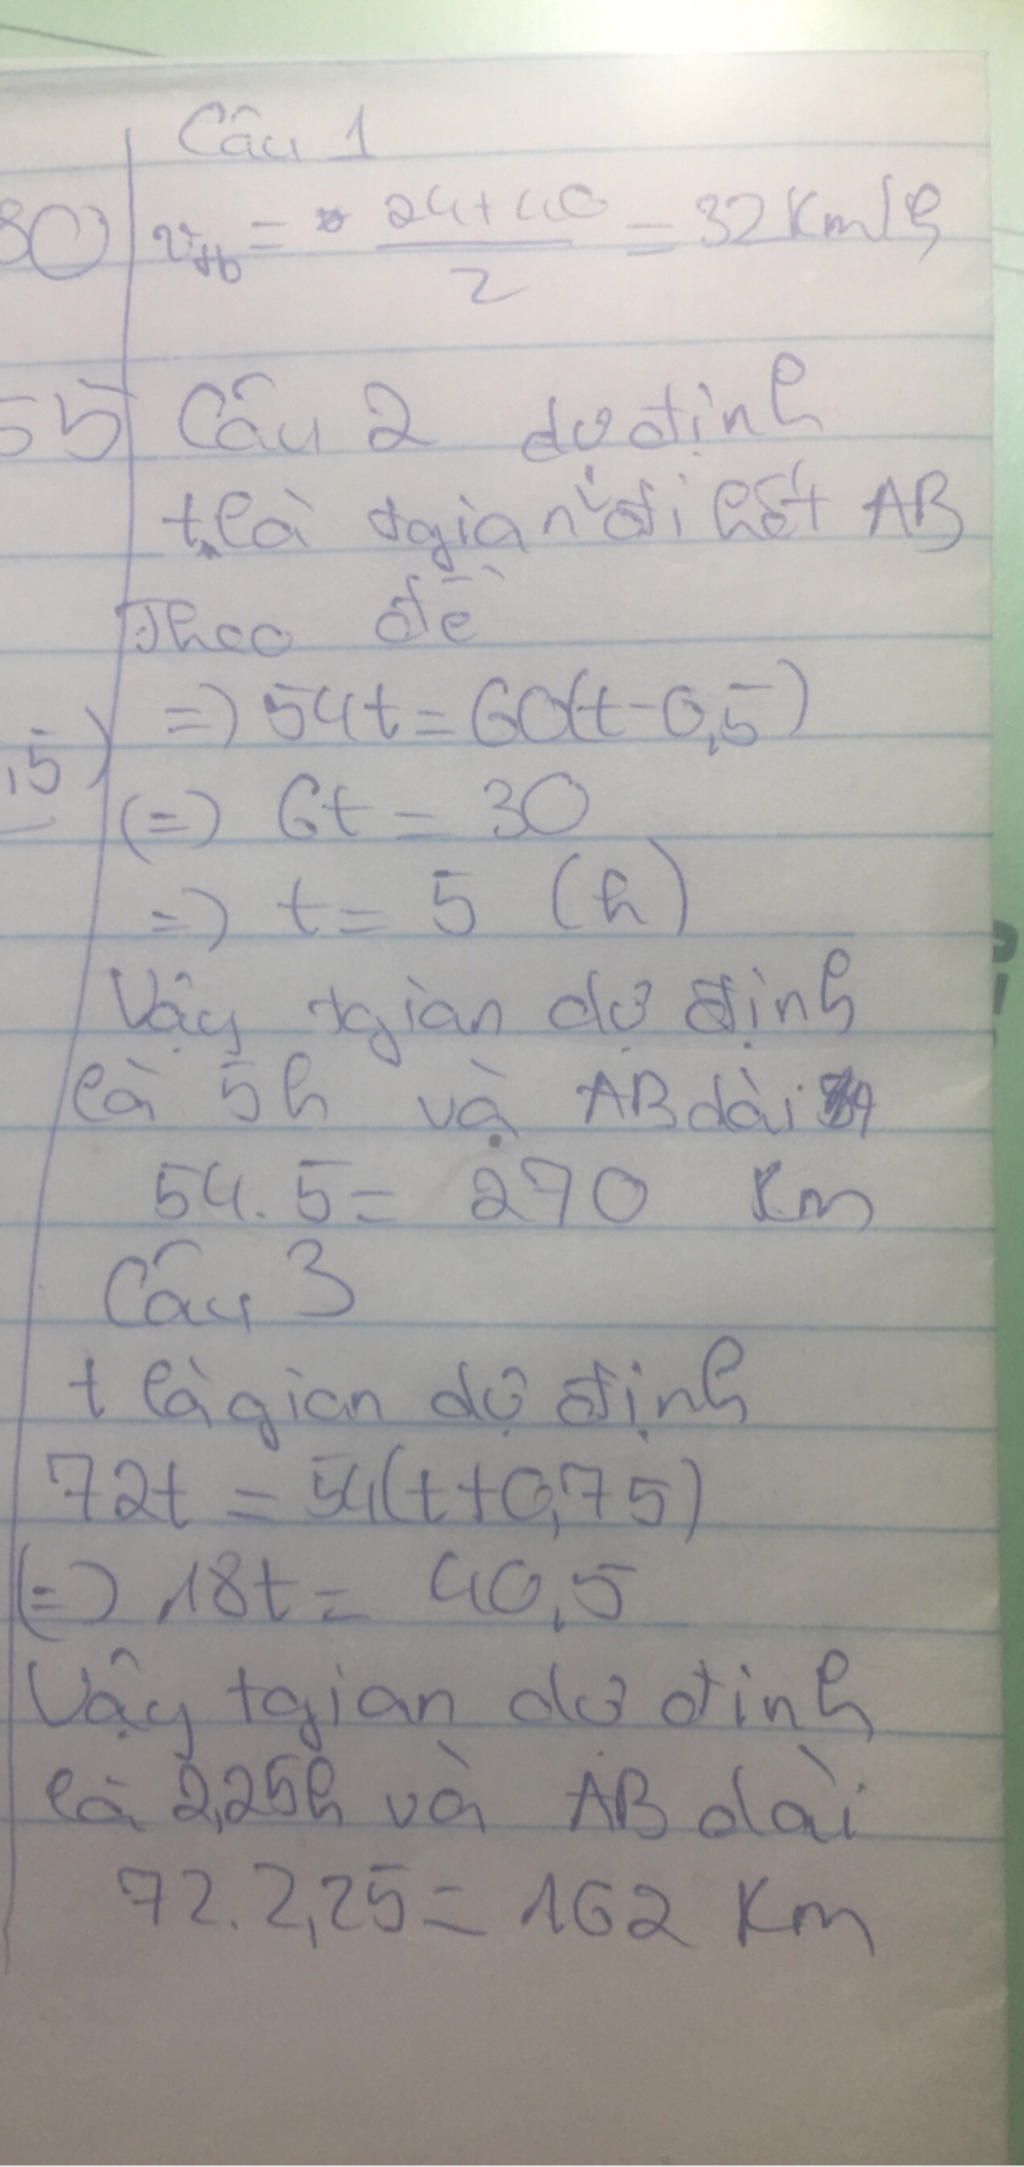 Câu 1
30
v_tb = 24+40 / 2 = 32 Km/h
55
Câu 2 dự định
t là tgian đi hết AB
Theo đề
=> 54t = 60(t-0,5)
,5)
(=) 6t = 30
=> t = 5 (h)
Vậy tgian dự định
là 5h và AB dài
54.5 = 270 Km
Câu 3
t là gian dự định
72t = 54(t+0,75)
(=) 18t = 40,5
Vậy tgian dự định
là 2,25h và AB dài
72.2,25 = 162 Km